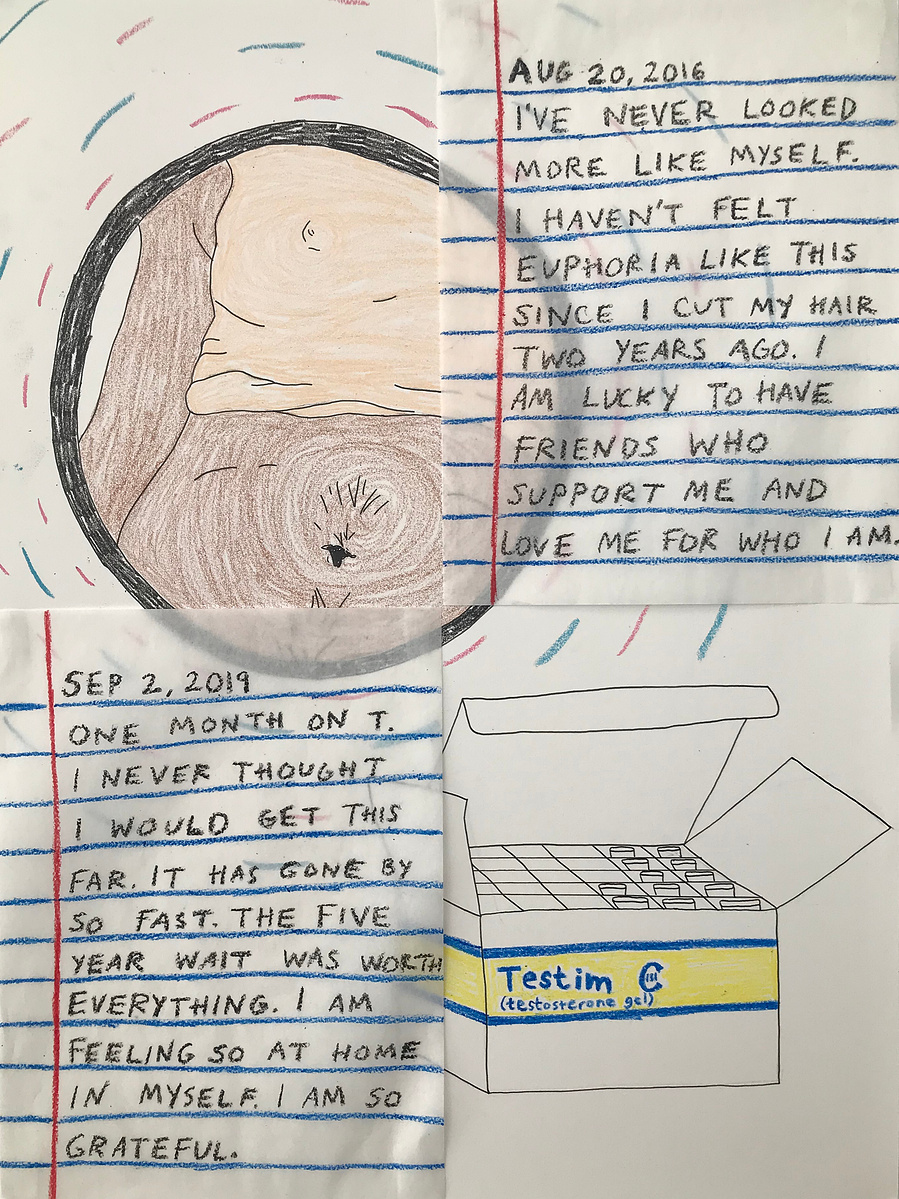 AUG 20, 2016
I'VE NEVER LOOKED
MORE LIKE MYSELF.
I HAVEN'T FELT
EUPHORIA LIKE THIS
SINCE I CUT MY HAIR
TWO YEARS AGO. I
AM LUCKY TO HAVE
FRIENDS WHO
SUPPORT ME AND
LOVE ME FOR WHO I AM.
SEP 2, 2019
ONE MONTH ON T.
I NEVER THOUGHT
I WOULD GET THIS
FAR. IT HAS GONE BY
SO FAST. THE FIVE
YEAR WAIT WAS WORTH
EVERYTHING. I AM
FEELING SO AT HOME
IN MYSELF. I AM SO
GRATEFUL.
Testim
(testosterone gel)